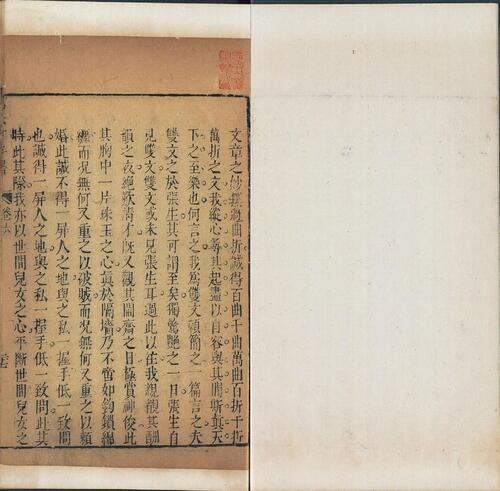 文章之妙無過曲折誠得百曲千曲萬曲百折千折
萬折之文我縱心尋其起盡以自容與其間斯真天
下之至樂也何言之我爲雙文賴簡之一篇言之夫
雙文之於張生其可謂至矣獨驚艷之一日張生自
見雙文雙文或未見張生耳過此以往我親觀其酬
韻之夜絕歎清才旣又觀其鬧齋之日極賞神俊此
其胸中一片珠玉之心眞於隔墻乃不啻如鉤鎖綿
纏而况無何又重之以破賊而况無何又重之以賴
婚此誠不得一屏人之地與之私一握手低一致問
也誠得一屏人之地與之私一握手低一致問此其
時此其際我亦以世間兒女之心平斷世間兒女之
卷六